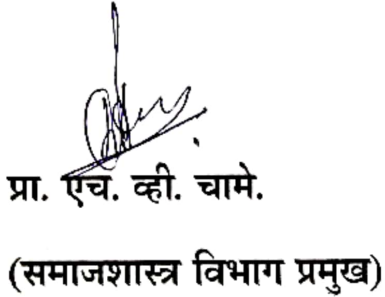 प्रा. एच. व्ही. चामे.
(समाजशास्त्र विभाग प्रमुख)